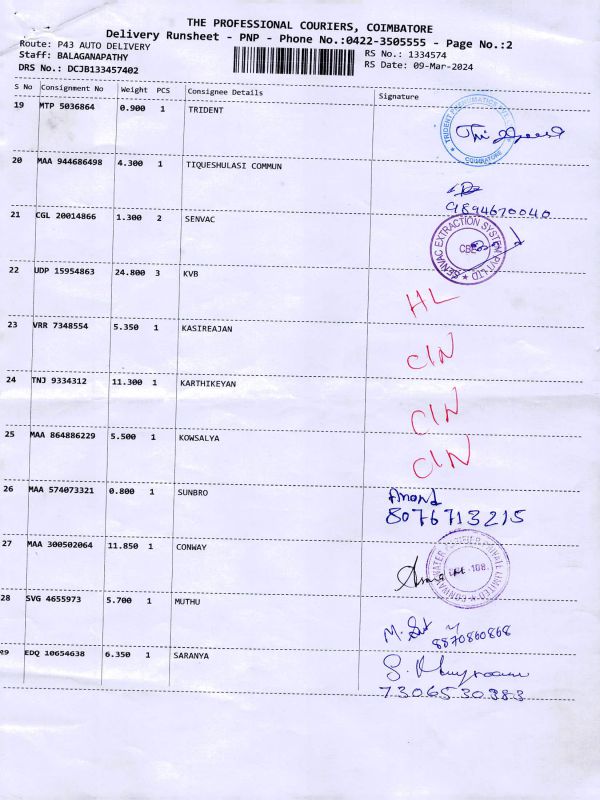 THE PROFESSIONAL COURIERS, COIMBATORE
Delivery Runsheet - PNP - Phone No.:0422-3505555 - Page No.:2
Route: P43 AUTO DELIVERY RS No.: 1334574
Staff: BALAGANAPATHY RS Date: 09-Mar-2024
DRS No.: DCJB133457402
S No Consignment No Weight PCS Consignee Details Signature
19 MTP 5036864 0.900 1 TRIDENT
COIMBATORE
20 MAA 944686498 4.300 1 TIQUESHULASI COMMUN
9894670040
21 CGL 20014866 1.300 2 SENVAC
SENVAC EXTRACTION SYSTEM PVT LTD
CBE
22 UDP 15954863 24.800 3 KVB
HL
23 VRR 7348554 5.350 1 KASIREAJAN
CIN
24 TNJ 9334312 11.300 1 KARTHIKEYAN
CIN
25 MAA 864886229 5.500 1 KOWSALYA
CIN
26 MAA 574073321 0.800 1 SUNBRO
Anand
8076713215
27 MAA 300502064 11.850 1 CONWAY
28 SVG 4655973 5.700 1 MUTHU
8870860868
29 EDQ 10654638 6.350 1 SARANYA
7306530383